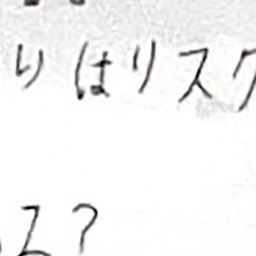 りはリスク
る?